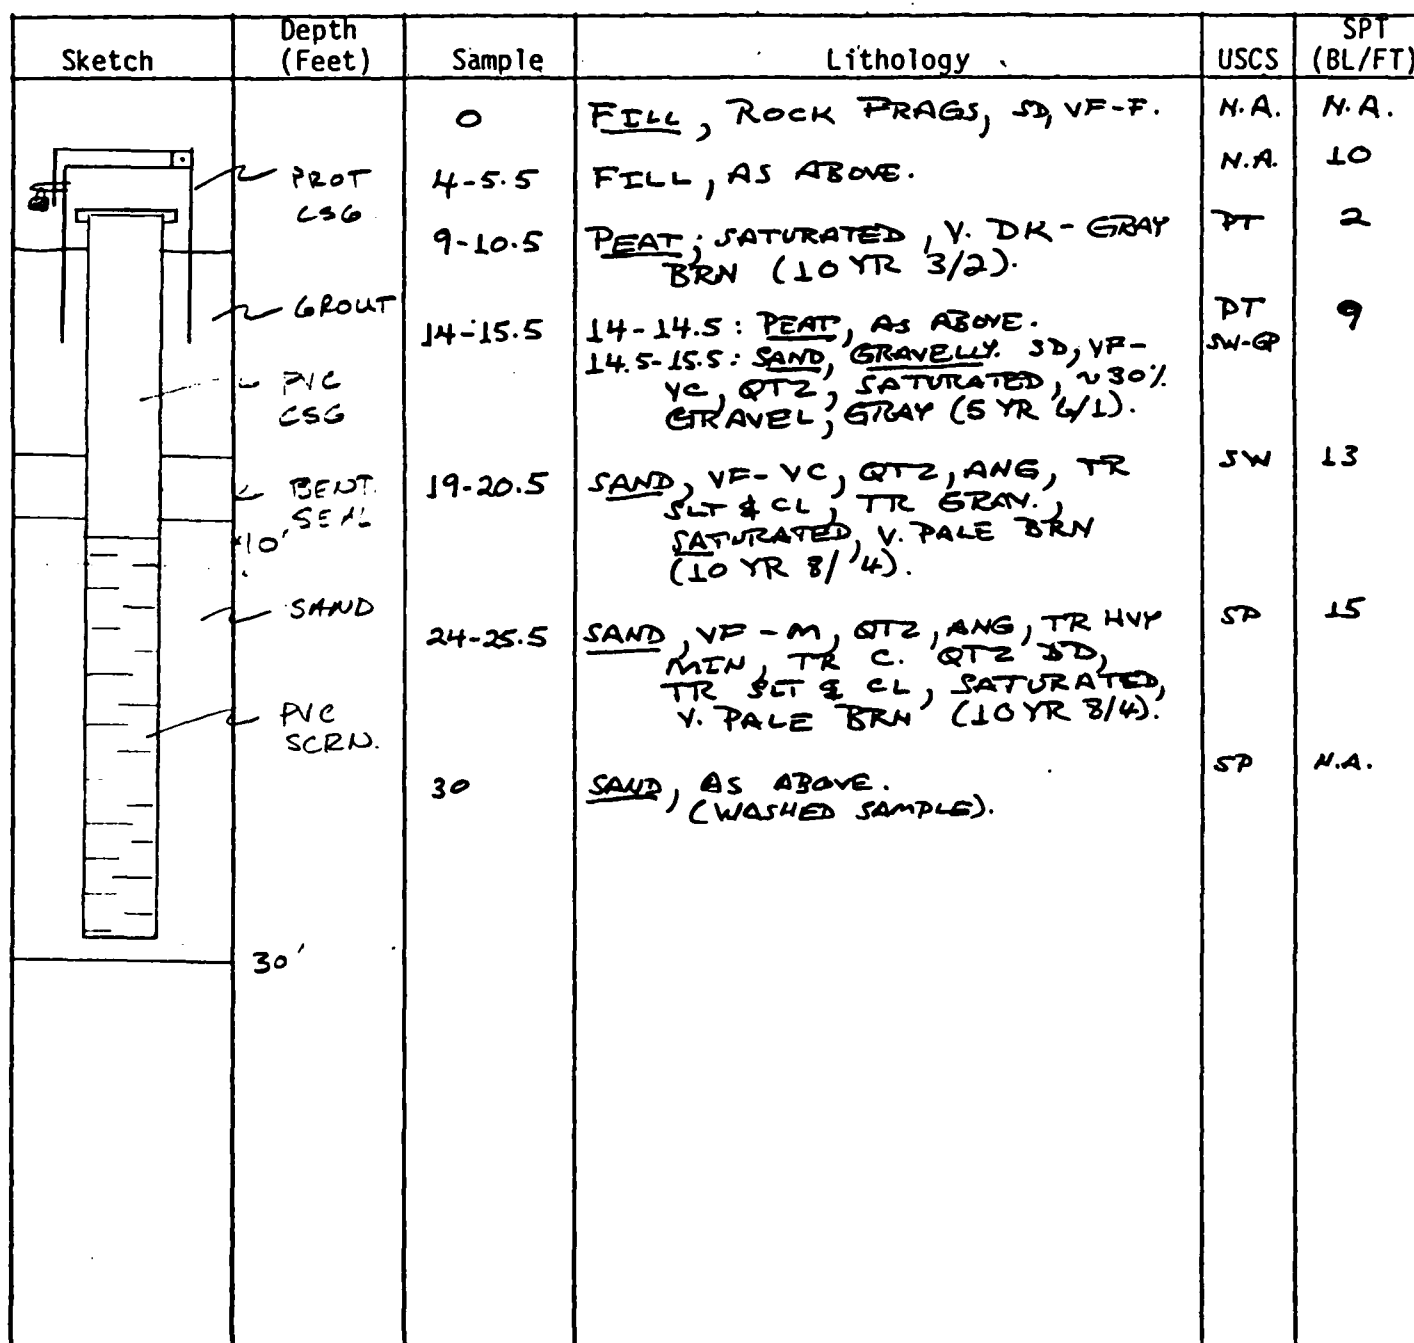 Sketch Depth (Feet) Sample Lithology USCS SPT (BL/FT)
0 FILL, ROCK FRAGS, SD, VF-F. N.A. N.A.
PROT CSG
4-5.5 FILL, AS ABOVE. N.A. 10
9-10.5 PEAT; SATURATED, V. DK-GRAY PT 2
BRN (10 YR 3/2).
GROUT
14-15.5 14-14.5: PEAT, AS ABOVE. PT 9
14.5-15.5: SAND, GRAVELLY. SD, VF- SW-GP
VC, QTZ, SATURATED, ~30%
GRAVEL, GRAY (5 YR 6/1).
PVC CSG
19-20.5 SAND, VF-VC, QTZ, ANG, TR SW 13
SLT & CL, TR GRAV.,
SATURATED, V. PALE BRN
(10 YR 8/4).
BENT. SEAL
10'
SAND
24-25.5 SAND, VF-M, QTZ, ANG, TR HVY SP 15
MIN, TR C. QTZ SD,
TR SLT & CL, SATURATED,
V. PALE BRN (10 YR 8/4).
PVC SCRN.
30 SAND, AS ABOVE. SP N.A.
(WASHED SAMPLE).
30'